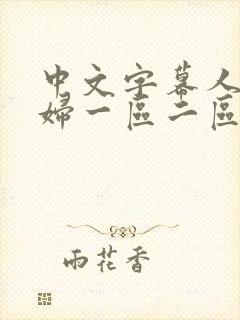 中文字幕人
婦一區二區
雨花香